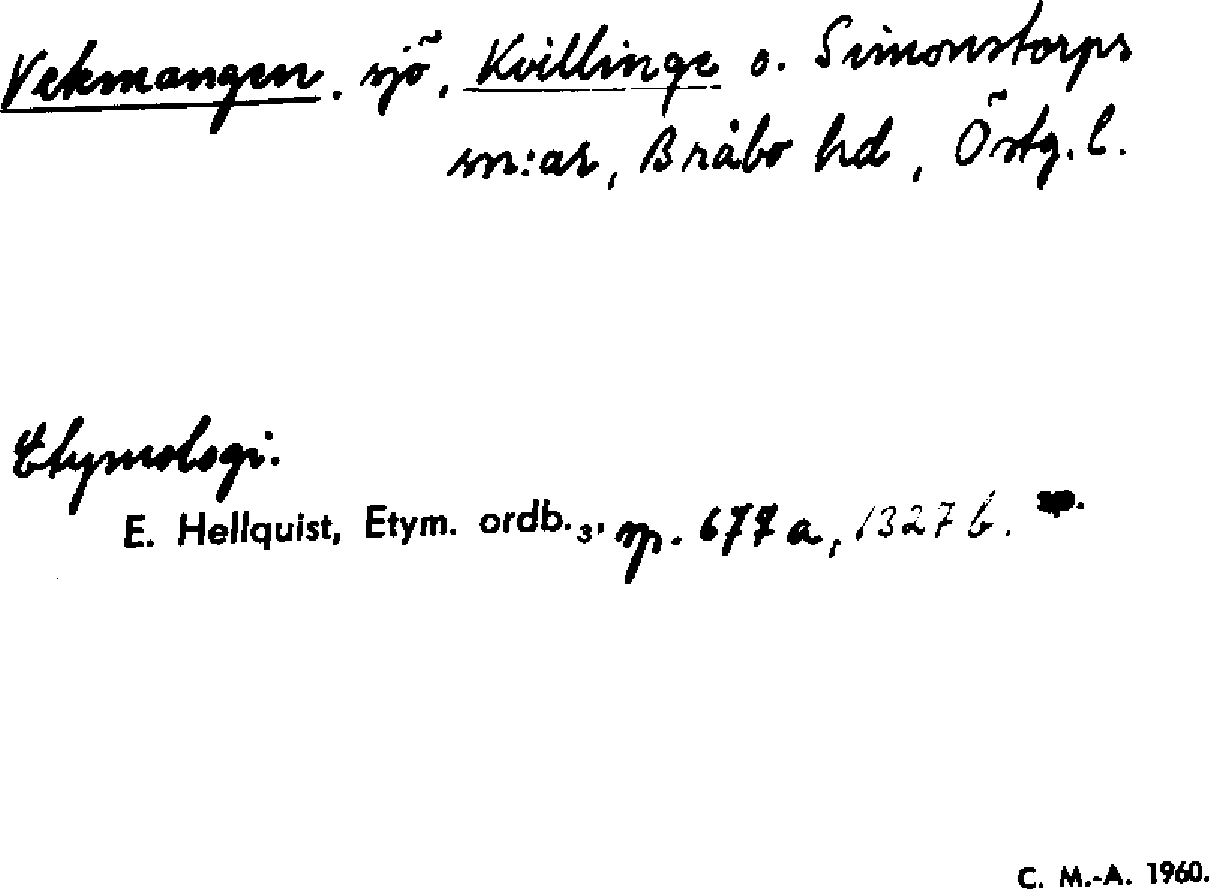 Vekmangen. sjö, Kvillinge o. Simonstorps
sn:ar, Bråbo hd, Östg. l.
Etymologi:
E. Hellquist, Etym. ordb.₃, sp. 677 a, 1327 b.
C. M.-A. 1960.